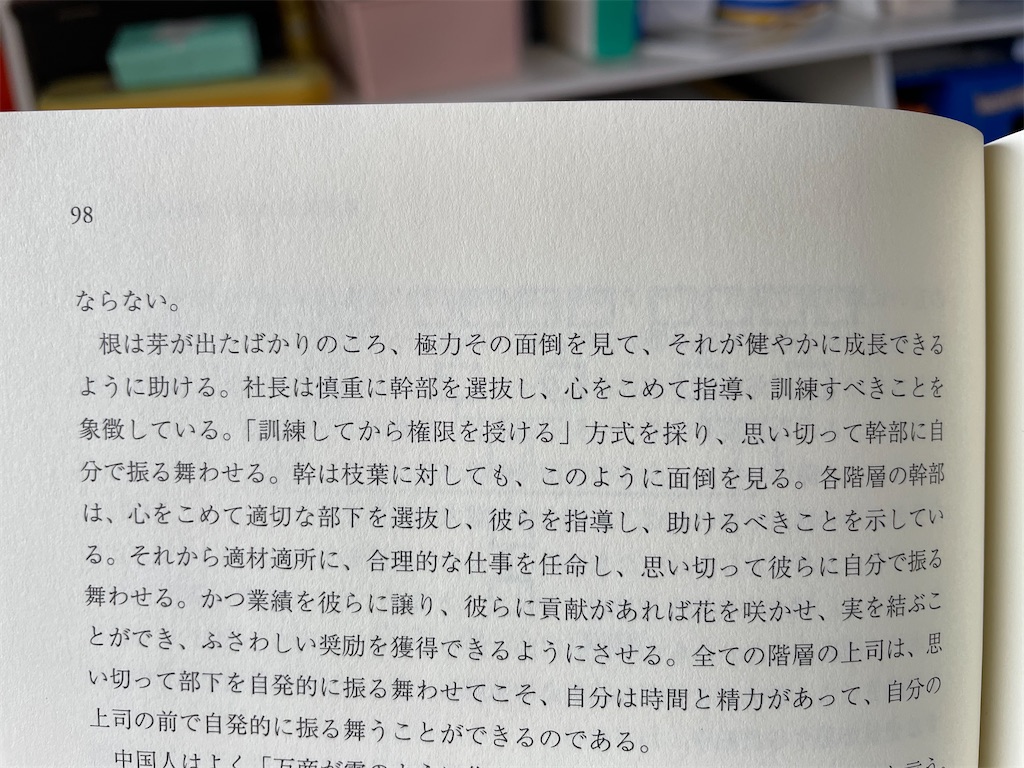 98
ならない。
根は芽が出たばかりのころ、極力その面倒を見て、それが健やかに成長できる
ように助ける。社長は慎重に幹部を選抜し、心をこめて指導、訓練すべきことを
象徴している。「訓練してから権限を授ける」方式を採り、思い切って幹部に自
分で振る舞わせる。幹は枝葉に対しても、このように面倒を見る。各階層の幹部
は、心をこめて適切な部下を選抜し、彼らを指導し、助けるべきことを示してい
る。それから適材適所に、合理的な仕事を任命し、思い切って彼らに自分で振る
舞わせる。かつ業績を彼らに譲り、彼らに貢献があれば花を咲かせ、実を結ぶこ
とができ、ふさわしい奨励を獲得できるようにさせる。全ての階層の上司は、思
い切って部下を自発的に振る舞わせてこそ、自分は時間と精力があって、自分の
上司の前で自発的に振る舞うことができるのである。
中国人はよく「